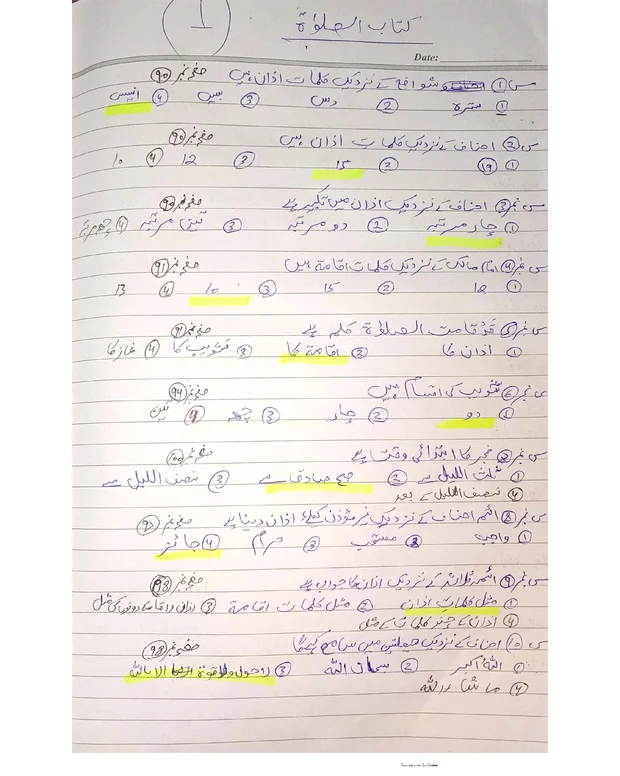 1
کتاب الصلوٰۃ
Date:
س ① شوافع کے نزدیک کلمات اذان ہیں صفحہ نمبر 90
① سترہ ② دس ③ بیس ④ انیس
س ② احناف کے نزدیک کلمات اذان ہیں صفحہ نمبر 90
① 19 ② 15 ③ 12 ④ 10
س نمبر ③ احناف کے نزدیک اذان میں تکبیر ہے صفحہ نمبر 90
① چار مرتبہ ② دو مرتبہ ③ تین مرتبہ ④
س نمبر ④ امام مالک کے نزدیک کلمات اقامۃ ہیں صفحہ نمبر 91
① 12 ② 15 ③ 10 ④ 13
س نمبر ⑤ قد قامت الصلوٰۃ کلمہ ہے صفحہ نمبر 91
① اذان کا ② اقامۃ کا ③ تثویب کا ④ نماز کا
س نمبر ⑥ تثویب کی اقسام ہیں صفحہ نمبر 94
① دو ② چار ③ چھ ④ تین
س نمبر ⑦ فجر کا ابتدائی وقت ہے صفحہ نمبر 100
① ثلث اللیل سے ② صبح صادق سے ③ نصف اللیل سے
④ نصف اللیل کے بعد
س نمبر ⑧ ائمہ احناف کے نزدیک غیر مؤذن کیلئے اذان دینا ہے صفحہ نمبر
① واجب ② مستحب ③ حرام ④ جائز
س نمبر ⑨ ائمہ ثلاثہ کے نزدیک اذان کا جواب ہے صفحہ نمبر 98
① مثل کلمات اذان ② مثل کلمات اقامۃ ③ اذان و اقامۃ دونوں کی مثل
④ اذان کے چند کلمات کے مثل
س ⑩ احناف کے نزدیک حیعلتین میں سامع کہے گا صفحہ نمبر 98
① اللہ اکبر ② سبحان اللہ ③ لاحول ولا قوۃ الا باللہ
④ ماشاءاللہ